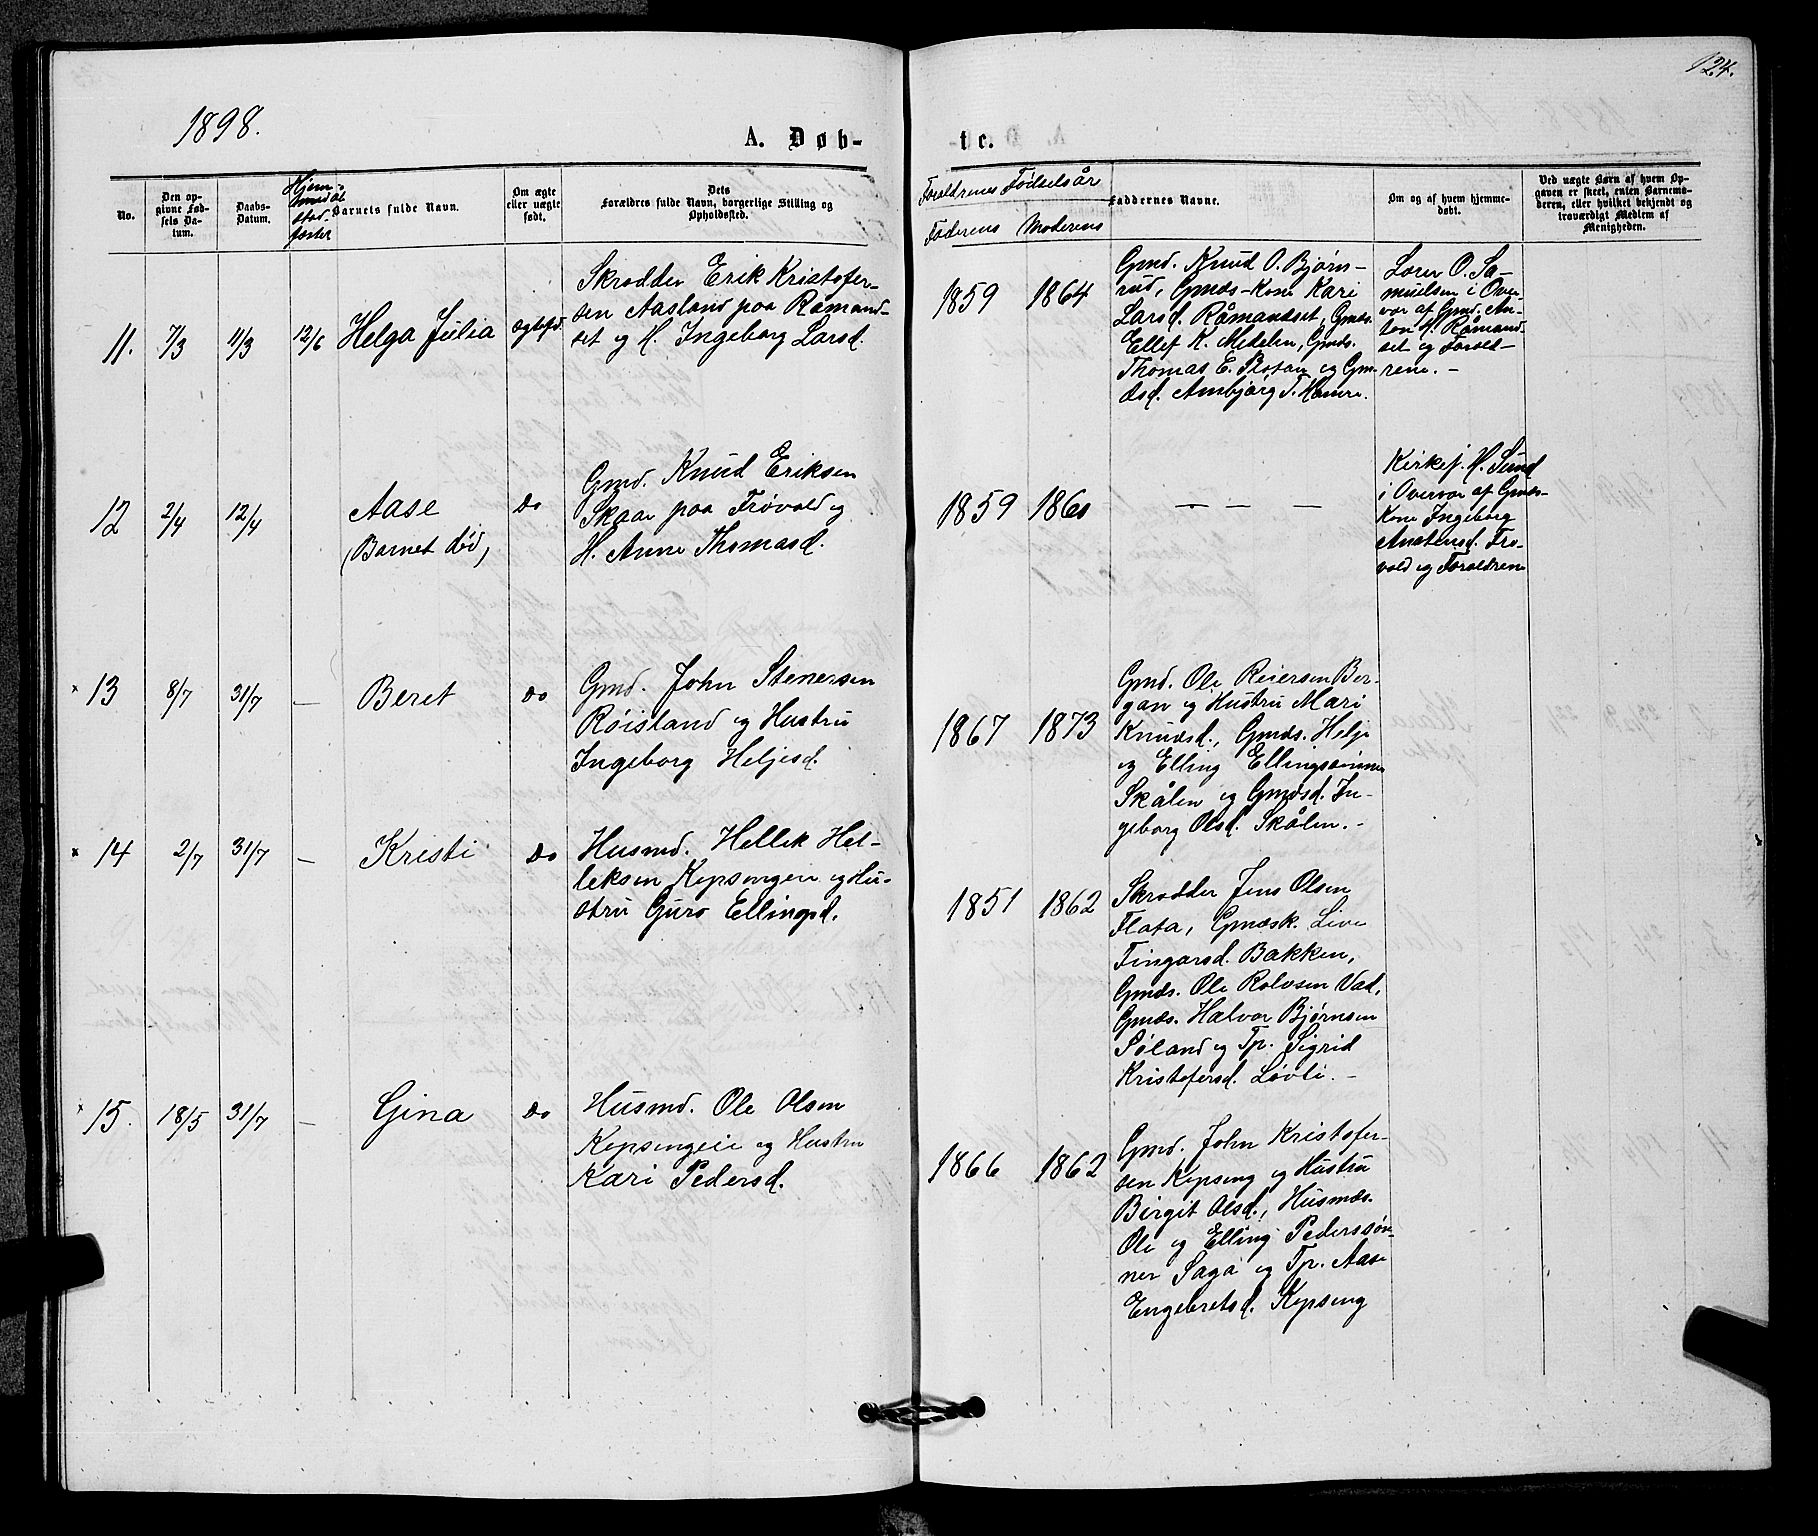 124.
1898.
A. Døb-
te.
No.
Den op-
givne Fød-
sels Da-
tum.
Daabs-
Datum.
Barnets fulde Navn.
Om ægte
eller uægte
født.
Dets
Forældres fulde Navn, borgerlige Stilling og
Opholdssted.
Forældrenes Fødselsår
Faderens Moderens
Faddernes Navne.
Om og af hvem hjemme-
døbt.
Ved uægte Børn af hvem Op-
gaven er skeet, enten Barnemo-
deren, eller hvilket bekjendt og
troværdigt Medlem af
Menigheden.
11. 7/3 11/3 12/6 Helga Julia ægtefd.
Skrædder Erik Kristofer-
sen Aasland paa Råmand-
set og H. Ingeborg Larsd.
1859 1864
Gmd. Knud O. Bjørn-
rud, Gmds-Kone Kari
Larsd. Råmandset, Gmds.
Ellef K. Medelen, Gmds.
Thomas E. Flotan og Gm-
dsd. Ambjørg T. Hamre.
Lærer O. Sa-
muelsen i Over-
vær af Gmd. An-
ton H. Råmand-
set og Foræld-
rene. -
12 2/4 12/4 Aase
(Barnet død)
Do
Gmd. Knud Eriksen
Skaar paa Frøvold og
H. Anne Thomasd.
1859 1860
- - -
Kirkes. H. Sund
i Overvær af Gmds-
Kone Ingeborg
Anstensd. Frø-
vold og Forældrene
× 13 8/7 31/7 — Beret Do
Gmd. John Stenersen
Røisland og Hustru
Ingeborg Heljesd.
1867 1873
Gmd. Ole Reiersen Ber-
gan og Hustru Mari
Knudsd., Gmds. Helje
og Elling Ellingsønner
Skålen og Gmdsd. In-
geborg Olsd. Skålen. -
× 14 2/7 31/7 — Kristi Do
Husmd. Hellek Hel-
leksen Kopsengeie og Hu-
stru Guro Ellingsd.
1851 1862
Skrædder Jens Olsen
Flata, Gmdsk. Live
Fingarsd. Bakken,
Gmds. Ole Rolvsen Vad,
Gmds. Halvor Bjørnsen
Søland og Tp. Sigrid
Kristofersd. Løvli. -
× 15. 18/5 31/7 — Gina Do
Husmd. Ole Olsen
Kopsengeie og Hustru
Kari Pedersd.
1866 1862
Gmd. John Kristofer-
sen Kopseng og Hustru
Birgit Olsd., Husmds.
Ole og Elling Pedersøn-
ner Saga og Tp. Aase
Engebretsd. Kopseng